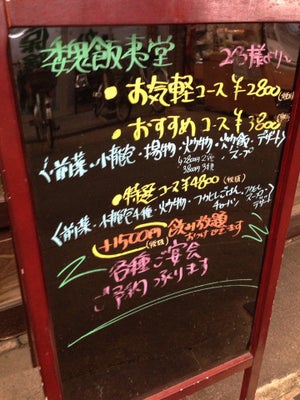 魏飯夷堂 2名様より〜
・お気軽コース ¥2800(税抜)
・おすすめコース ¥3800(税抜)
〈前菜・小籠包・揚物・炒物・炒飯・デザート〉
2800円 2種
3800円 3種
スープ
・特選コース ¥4800(税抜)
〈前菜・小籠包4種・炒物・
チャーハン
デザート
+1500円(税抜) 飲み放題
おつけできます
各種ご宴会
ご予約承ります